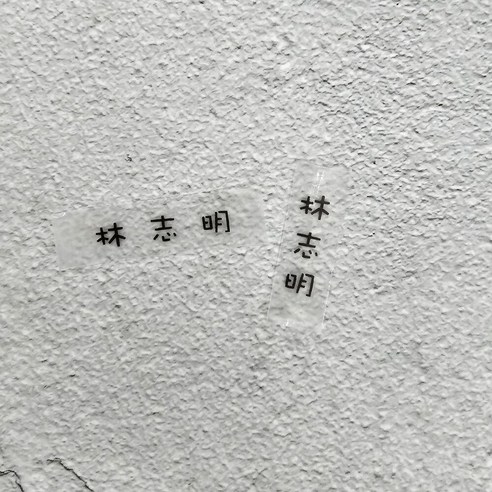 林志明
林志明